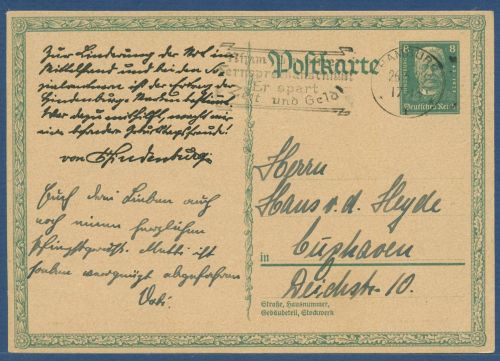 Zur Linderung der Not im
Mittelstand und bei den So-
zialrentnern ist der Ertrag der
Hindenburg-Karten bestimmt.
Wer dazu mithilft, macht mir
eine besondere Geburtstagsfreude!
von Hindenburg
Euch drei Lieben auch
noch einen herzlichen
Pfingstgruß. Mutti ist
soeben vergnügt abgefahren
Vati.
Postkarte
Nimm
Fernsprechanschluß
Er spart
und Geld
HAMBURG
26
17
1
8 8
Deutsches Reich
Herrn
Hans v. d. Heyde
in Cuxhaven
Deichstr. 10.
Straße, Hausnummer,
Gebäudeteil, Stockwerk